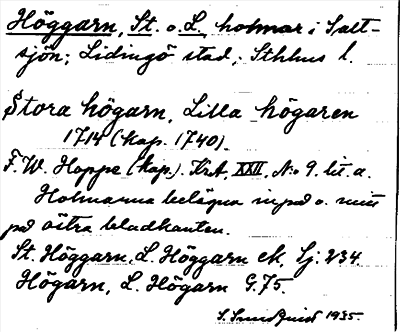 Höggarn, St. o. L., holmar i Salt-
sjön; Lidingö stad, Sthlms l.
Stora högarn, Lilla högaren
1714 (kop. 1740).
F. W. Hoppe (kop.). KrA, XXII, No 9. lit. a.
Holmarna belägna inpå o. mitt
på östra bladkanten.
St. Höggarn, L. Höggarn ek. Sj: 234.
Högarn, L. Högarn G. 75.
S. Sundquist 1935.